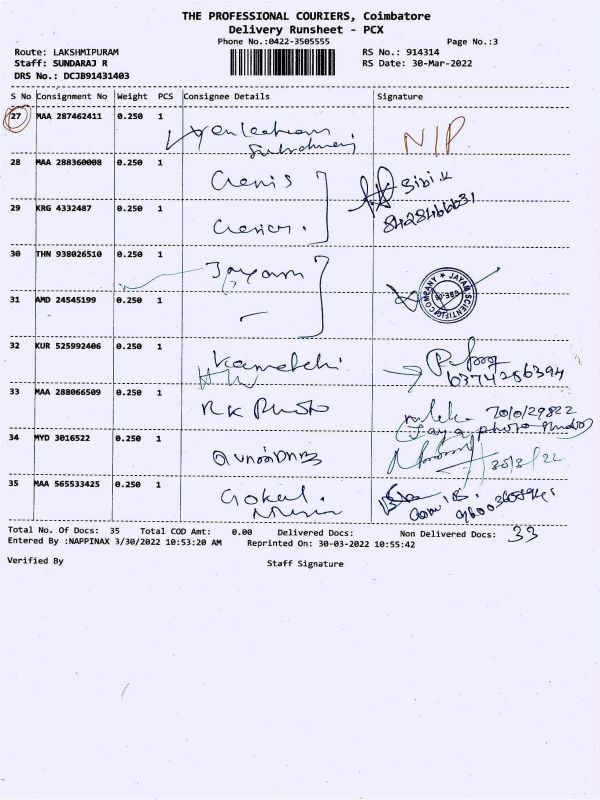 THE PROFESSIONAL COURIERS, Coimbatore
Delivery Runsheet - PCX
Phone No.:0422-3505555
Page No.:3
Route: LAKSHMIPURAM
RS No.: 914314
Staff: SUNDARAJ R
RS Date: 30-Mar-2022
DRS No.: DCJB91431403
S No Consignment No Weight PCS Consignee Details Signature
27 MAA 287462411 0.250 1
N/P
28 MAA 288360008 0.250 1
Sibi.K
8428466631
29 KRG 4332487 0.250 1
30 THN 938026510 0.250 1
Jayam
31 AMD 24545199 0.250 1
JAYAM SCIENTIFIC COMPANY
32 KUR 525992406 0.250 1
Kamatchi
33 MAA 288066509 0.250 1
RK Photo
Jaya photo studio
34 MYD 3016522 0.250 1
30/3/22
35 MAA 565533425 0.250 1
Gokul.
Total No. Of Docs: 35 Total COD Amt: 0.00 Delivered Docs: Non Delivered Docs: 33
Entered By :NAPPINAX 3/30/2022 10:53:20 AM Reprinted On: 30-03-2022 10:55:42
Verified By
Staff Signature